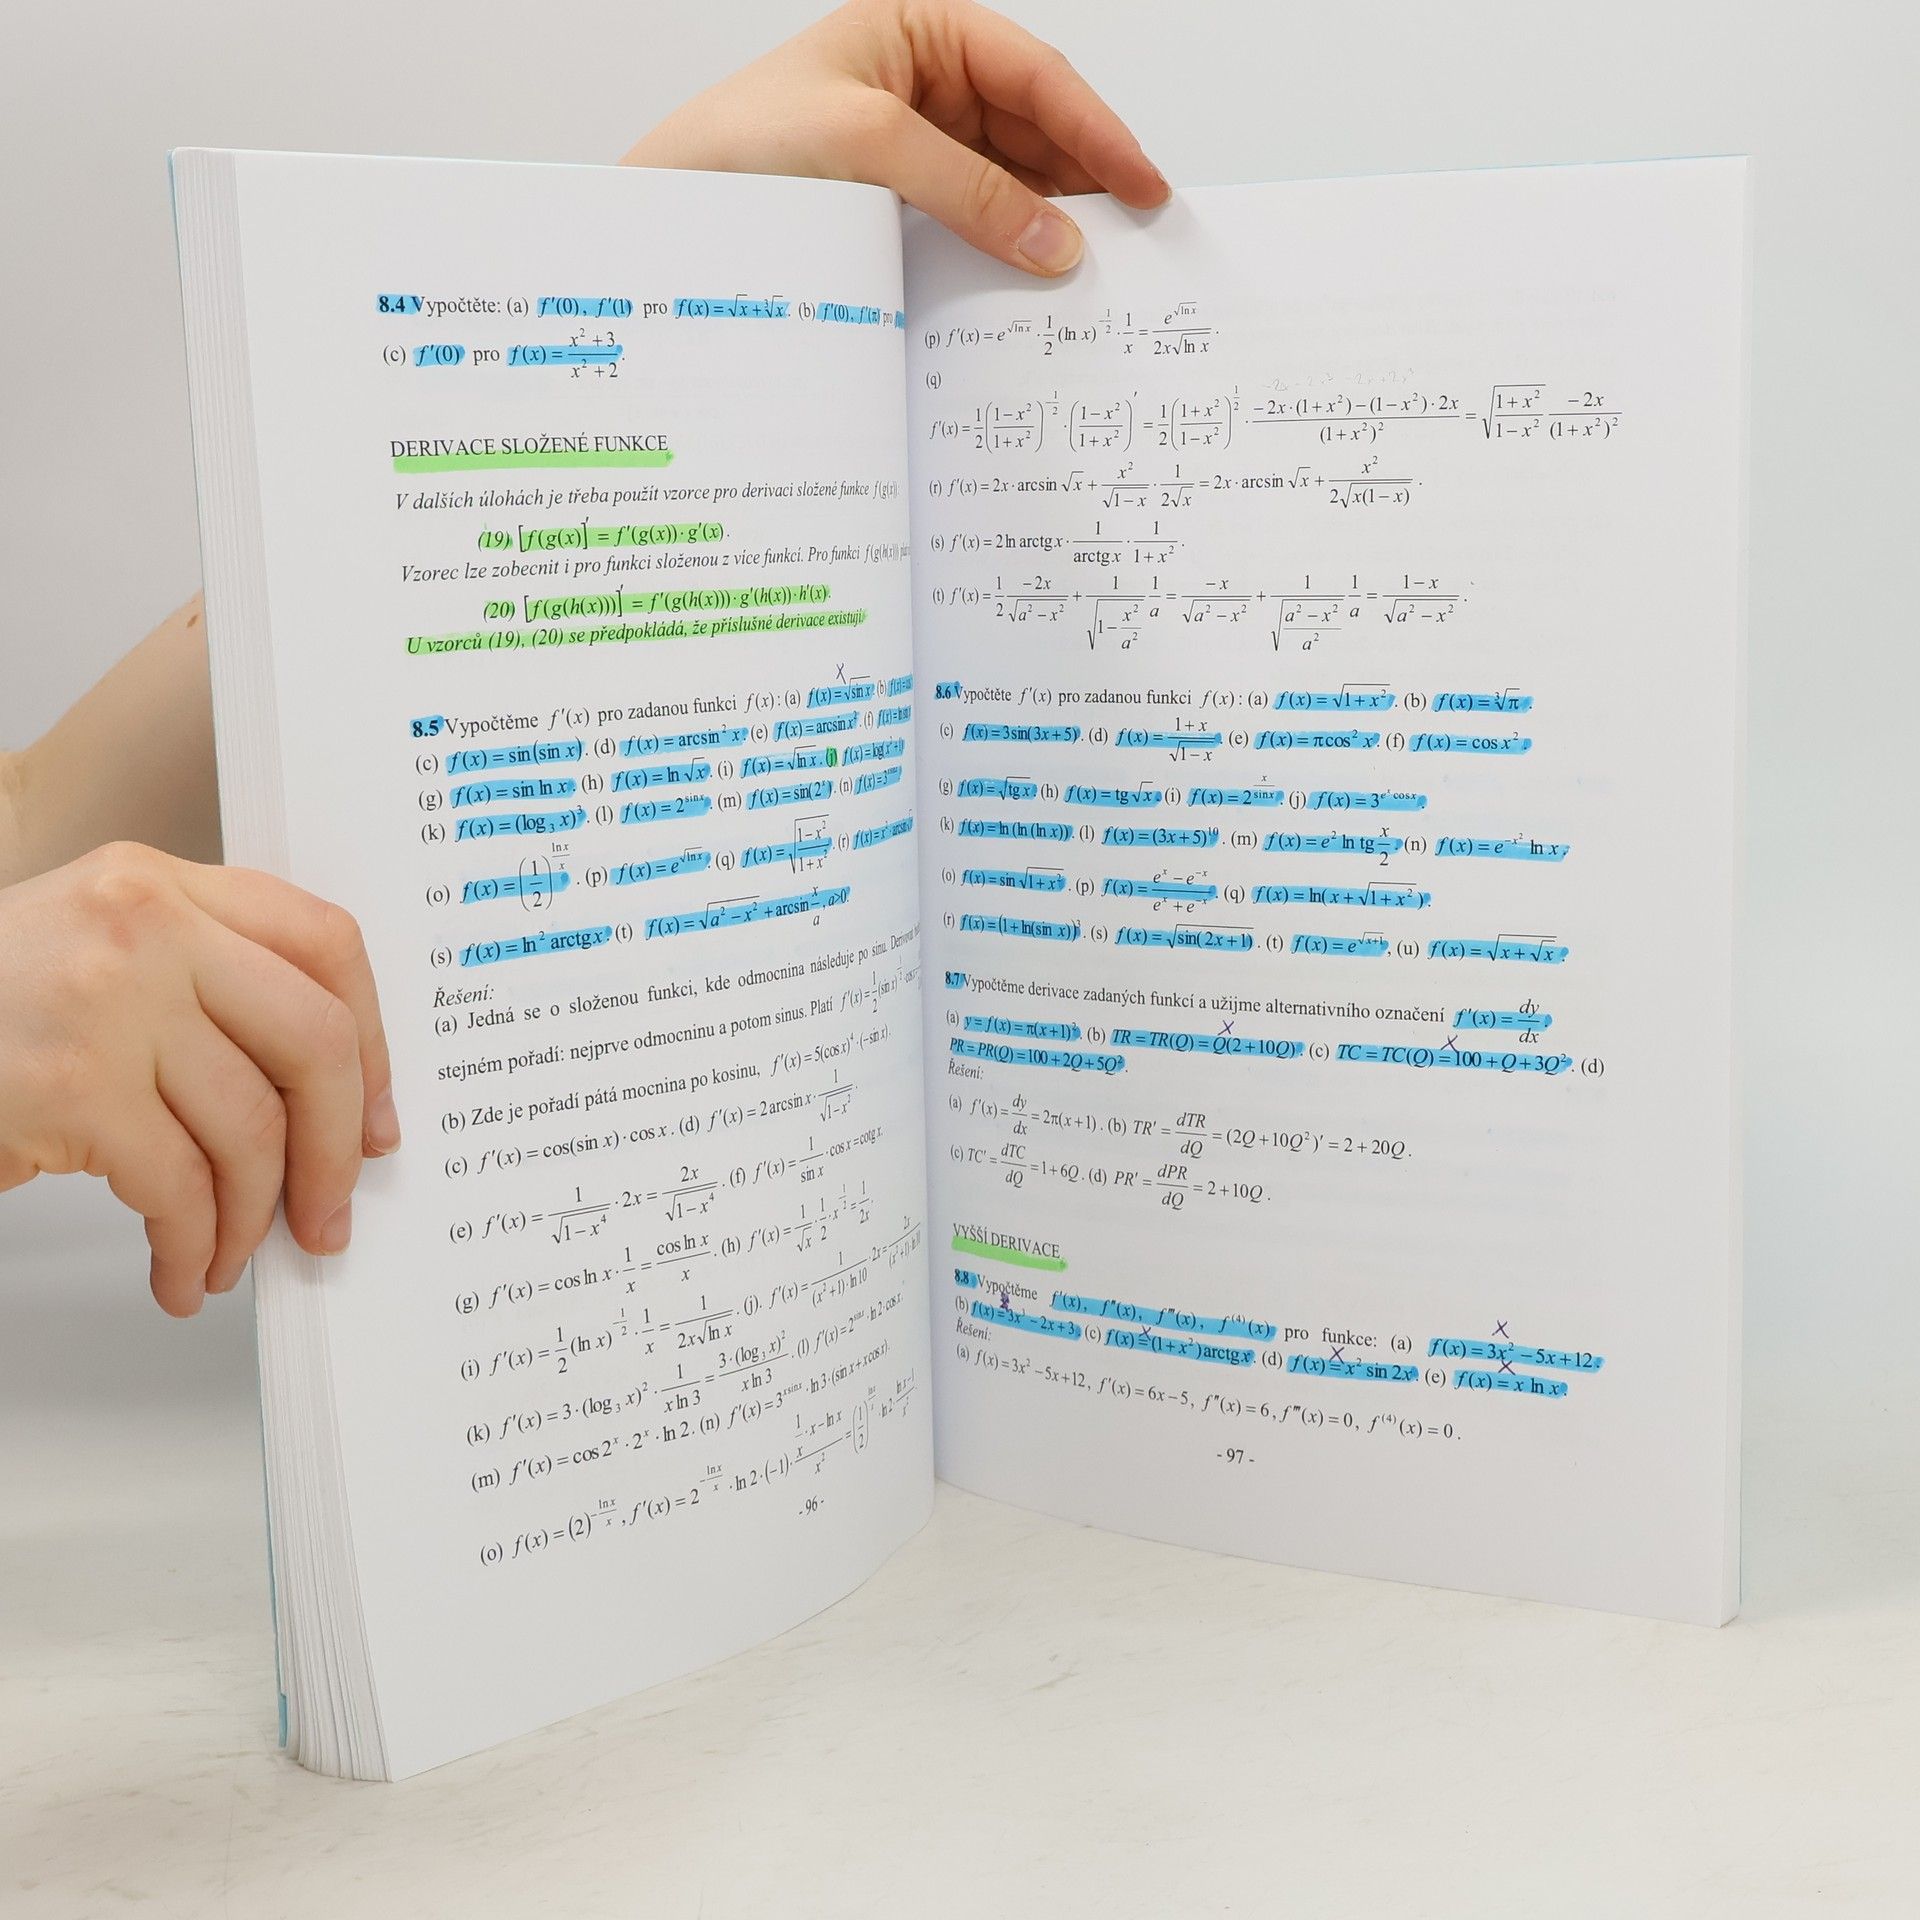 8.4 Vypočtěte: (a) f'(0), f'(1) pro f(x) = √x + ∛x. (b) f'(0), f'(π) pro
(c) f'(0) pro f(x) = (x² + 3)/(x² + 2).
DERIVACE SLOŽENÉ FUNKCE
V dalších úlohách je třeba použít vzorce pro derivaci složené funkce f(g(x)):
(19) [f(g(x)]' = f'(g(x))·g'(x).
Vzorec lze zobecnit i pro funkci složenou z více funkcí. Pro funkci f(g(h(x)))
(20) [f(g(h(x)))]' = f'(g(h(x)))·g'(h(x))·h'(x).
U vzorců (19), (20) se předpokládá, že příslušné derivace existují.
X
8.5 Vypočtěme f'(x) pro zadanou funkci f(x): (a) f(x) = √sin x. (b)
(c) f(x) = sin(sin x). (d) f(x) = arcsin² x. (e) f(x) = arcsin x². (f)
(g) f(x) = sin ln x. (h) f(x) = ln √x. (i) f(x) = √ln x. (j) f(x) = log(x² + 1)
(k) f(x) = (log₃ x)³. (l) f(x) = 2^(sin x). (m) f(x) = sin(2^x). (n)
(o) f(x) = (1/2)^(ln x/x). (p) f(x) = e^(√ln x). (q) f(x) = √((1−x²)/(1+x²)). (r) f(x) = x²·arcsin
(s) f(x) = ln² arctg x. (t) f(x) = √(a² − x²) + arcsin x/a, a>0.
Řešení:
(a) Jedná se o složenou funkci, kde odmocnina následuje po sinu. Derivovat
stejném pořadí: nejprve odmocninu a potom sinus. Platí f'(x) = 1/2 (sin x)^(−1/2)·cos x
(b) Zde je pořadí pátá mocnina po kosinu, f'(x) = 5(cos x)⁴·(−sin x).
(c) f'(x) = cos(sin x)·cos x. (d) f'(x) = 2 arcsin x · 1/√(1−x²).
(e) f'(x) = 1/√(1−x⁴) · 2x = 2x/√(1−x⁴). (f) f'(x) = 1/sin x · cos x = cotg x.
(g) f'(x) = cos ln x · 1/x = cos ln x/x. (h) f'(x) = 1/√x · 1/2 · x^(−1/2) = 1/2x.
(i) f'(x) = 1/2 (ln x)^(−1/2) · 1/x = 1/(2x√ln x). (j). f'(x) = 1/((x²+1)·ln 10) · 2x = 2x/((x²+1)·ln 10)
(k) f'(x) = 3·(log₃ x)² · 1/(x ln 3) = 3·(log₃ x)²/(x ln 3). (l) f'(x) = 2^(sin x)·ln 2·cos x.
(m) f'(x) = cos 2^x · 2^x · ln 2. (n) f'(x) = 3^(x sin x)·ln 3·(sin x + x cos x).
(o) f(x) = (2)^(−ln x/x), f'(x) = 2^(−ln x/x) · ln 2·(−1)· (1/x · x − ln x)/x² = (1/2)^(ln x/x) · ln 2 · (ln x − 1)/x²
- 96 -
(p) f'(x) = e^(√ln x) · 1/2 (ln x)^(−1/2) · 1/x = e^(√ln x)/(2x√ln x).
(q)
f'(x) = 1/2 ((1−x²)/(1+x²))^(−1/2) · ((1−x²)/(1+x²))' = 1/2 ((1+x²)/(1−x²))^(1/2) · (−2x·(1+x²)−(1−x²)·2x)/(1+x²)² = √((1+x²)/(1−x²)) −2x/(1+x²)²
(r) f'(x) = 2x·arcsin √x + x²/√(1−x) · 1/(2√x) = 2x·arcsin √x + x²/(2√(x(1−x))).
(s) f'(x) = 2 ln arctg x · 1/arctg x · 1/(1+x²).
(t) f'(x) = 1/2 −2x/√(a²−x²) + 1/√(1−x²/a²) 1/a = −x/√(a²−x²) + 1/√((a²−x²)/a²) 1/a = (1−x)/√(a²−x²).
8.6 Vypočtěte f'(x) pro zadanou funkci f(x): (a) f(x) = √(1+x²). (b) f(x) = ∛π.
(c) f(x) = 3 sin(3x + 5). (d) f(x) = (1+x)/√(1−x). (e) f(x) = π cos² x. (f) f(x) = cos x².
(g) f(x) = √tg x. (h) f(x) = tg √x. (i) f(x) = 2^(x/sin x). (j) f(x) = 3^(e^x cos x).
(k) f(x) = ln(ln(ln x)). (l) f(x) = (3x + 5)¹⁰. (m) f(x) = e² ln tg x/2. (n) f(x) = e^(−x²) ln x.
(o) f(x) = sin √(1+x²). (p) f(x) = (e^x − e^(−x))/(e^x + e^(−x)). (q) f(x) = ln(x + √(1+x²)).
(r) f(x) = (1 + ln(sin x))³. (s) f(x) = √sin(2x+1). (t) f(x) = e^(√(x+1)), (u) f(x) = √(x + √x).
8.7 Vypočtěme derivace zadaných funkcí a užijme alternativního označení f'(x) = dy/dx.
(a) y = f(x) = π(x+1)². (b) TR = TR(Q) = Q(2 + 10Q). (c) TC = TC(Q) = 100 + Q + 3Q². (d)
PR = PR(Q) = 100 + 2Q + 5Q².
Řešení:
(a) f'(x) = dy/dx = 2π(x+1). (b) TR' = dTR/dQ = (2Q + 10Q²)' = 2 + 20Q.
(c) TC' = dTC/dQ = 1 + 6Q. (d) PR' = dPR/dQ = 2 + 10Q.
VYŠŠÍ DERIVACE
8.8 Vypočtěme f'(x), f''(x), f'''(x), f⁽⁴⁾(x) pro funkce: (a) f(x) = 3x² − 5x + 12.
(b) f(x) = 3x³ − 2x + 3. (c) f(x) = (1 + x²) arctg x. (d) f(x) = x² sin 2x. (e) f(x) = x ln x.
Řešení:
(a) f(x) = 3x² − 5x + 12, f'(x) = 6x − 5, f''(x) = 6, f'''(x) = 0, f⁽⁴⁾(x) = 0.
- 97 -